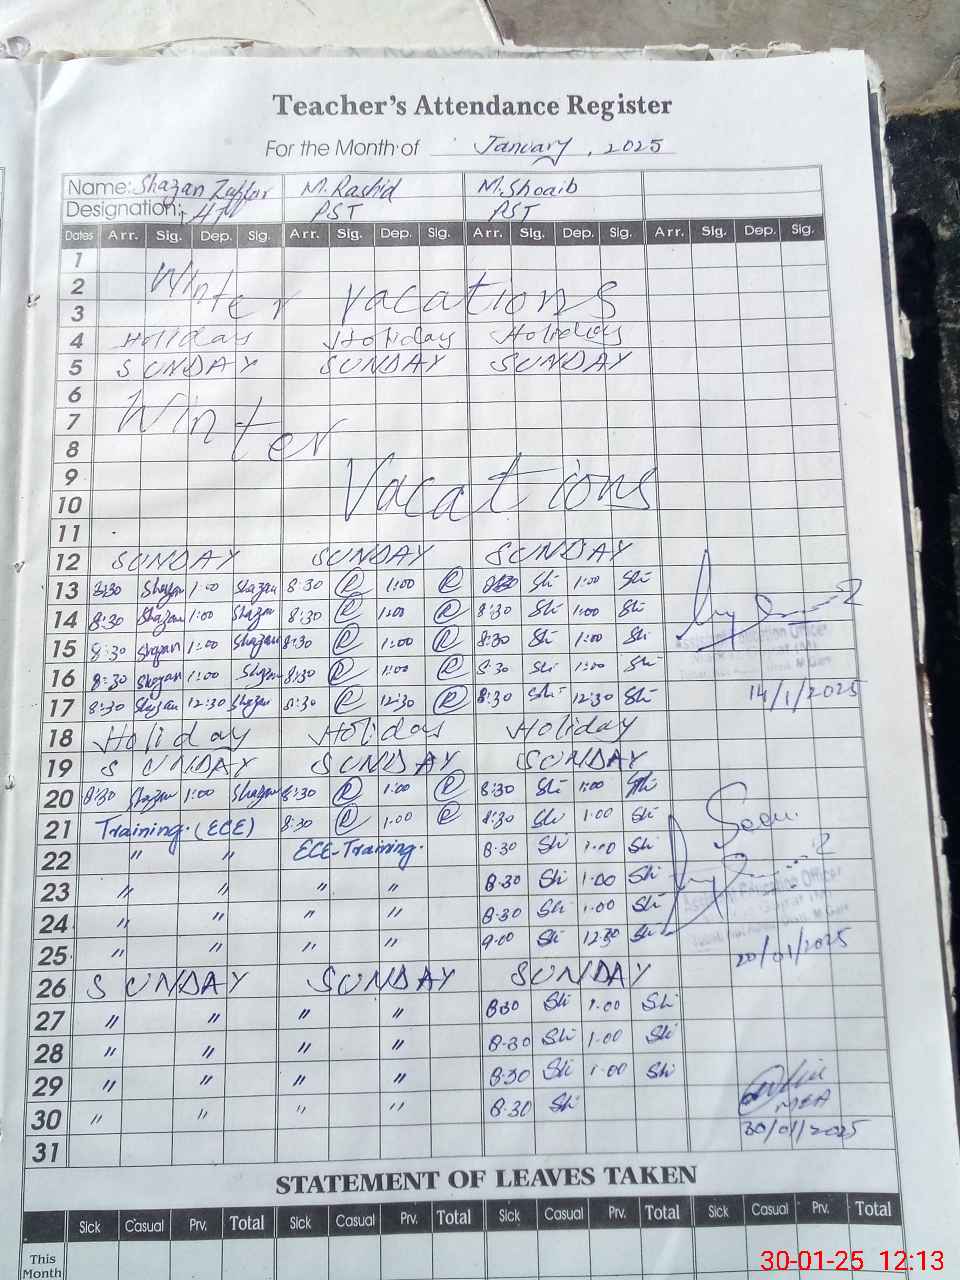 Teacher's Attendance Register
For the Month of January, 2025
Name: Shazan Zuffar M. Rashid M. Shoaib
Designation: PST PST
Dates Arr. Sig. Dep. Sig. Arr. Sig. Dep. Sig. Arr. Sig. Dep. Sig. Arr. Sig. Dep. Sig.
1
2 Winter vacations
3
4 Holiday Holiday Holiday
5 SUNDAY SUNDAY SUNDAY
6
7 Winter
8
9 Vacations
10
11
12 SUNDAY SUNDAY SUNDAY
13 8:30 Shazan 1:00 Shazan 8:30 R 1:00 R 8:30 Sh 1:00 Sh
14 8:30 Shazan 1:00 Shazan 8:30 R 1:00 R 8:30 Sh 1:00 Sh
15 8:30 Shazan 1:00 Shazan 8:30 R 1:00 R 8:30 Sh 1:00 Sh Assistant Education Officer
16 8:30 Shazan 1:00 Shazan 8:30 R 1:00 R 8:30 Sh 1:00 Sh
17 8:30 Shazan 12:30 Shazan 8:30 R 12:30 R 8:30 Sh 12:30 Sh 14/1/2025
18 Holiday Holiday Holiday
19 SUNDAY SUNDAY SUNDAY
20 8:30 Shazan 1:00 Shazan 8:30 R 1:00 R 8:30 Sh 1:00 Sh
21 Training. (ECE) 8:30 R 1:00 R 8:30 Sh 1:00 Sh Seen.
22 " " ECE-Training. 8:30 Sh 1:00 Sh
23 " " " " 8:30 Sh 1:00 Sh Assistant Education Officer
24 " " " " 8:30 Sh 1:00 Sh
25 " " " " 9:00 Sh 12:30 Sh 20/01/2025
26 SUNDAY SUNDAY SUNDAY
27 " " " " 8:30 Sh 1:00 Sh
28 " " " " 8:30 Sh 1:00 Sh
29 " " " " 8:30 Sh 1:00 Sh
30 " " " " 8:30 Sh MEA
31 30/01/2025
STATEMENT OF LEAVES TAKEN
Sick Casual Prv. Total Sick Casual Prv. Total Sick Casual Prv. Total Sick Casual Prv. Total
This
Month
30-01-25 12:13